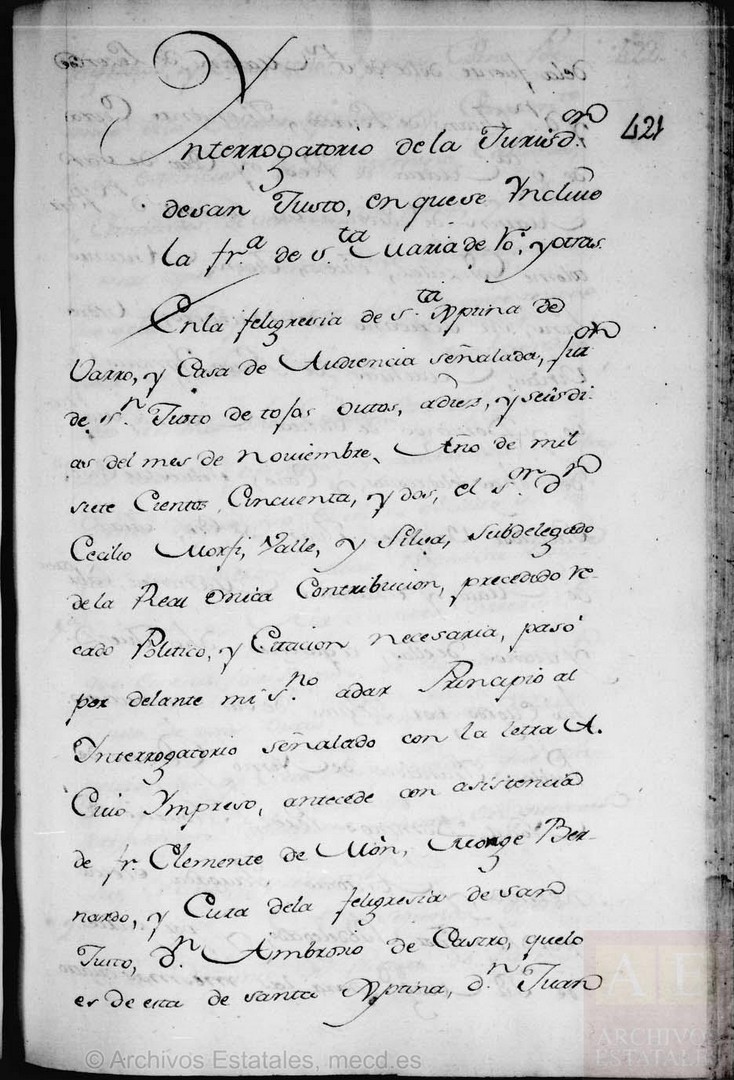 421
Ynterrogatorio dela Jurisd.on
de san Justo, en quese Yncluio
la fr.a de S.ta Maria de Ro.o, y otras.
Enla feligresia de S.ta Xptina de
Varro, y Casa de Audiencia señalada, jur.on
de S.n Justo de tojos outos, adiez, y seis di-
as del mes de Noviembre, Año de mil
siete Cientos Cincuenta, y dos, el s.or D.n
Cecilio Morfi, Valle, y Silva, Subdelegado
dela Real Unica Contribucion, precedido re-
cado Politico, y Citacion necesaria, pasó
por delante mi s.no adar Principio al
Ynterrogatorio señalado con la letra A.
Cuio Ympreso, antecede con asistencia
de fr. Clemente de Món, Monge Ber-
nardo, y Cura dela feligresia de san
Justo, d.n Ambrosio de Castro, quelo
es de esta de santa Xptina, d.n Juan
© Archivos Estatales, mecd.es
AE
ARCHIVOS
ESTATALES